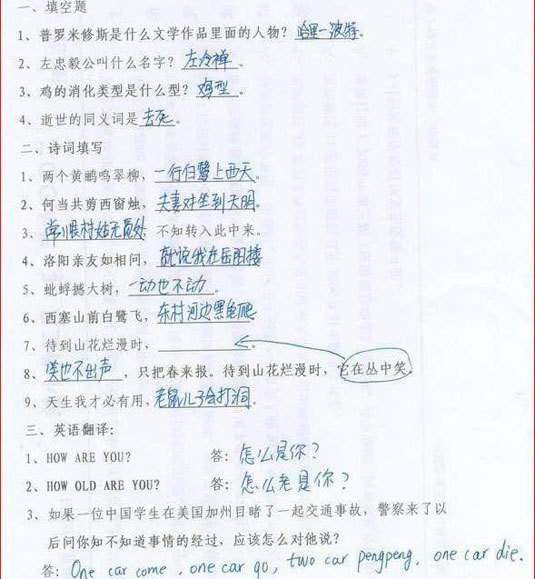 一、填空题
1、普罗米修斯是什么文学作品里面的人物？哈里-波特。
2、左忠毅公叫什么名字？左冷禅。
3、鸡的消化类型是什么型？鸡型。
4、逝世的同义词是去死。
二、诗词填写
1、两个黄鹂鸣翠柳，一行白鹭上西天。
2、何当共剪西窗烛，夫妻对坐到天明。
3、常恨村姑无觅处 不知转入此中来。
4、洛阳亲友如相问，就说我在岳阳楼
5、蚍蜉撼大树，一动也不动。
6、西塞山前白鹭飞，东村河边黑龟爬
7、待到山花烂漫时，
8、嘆也不出声，只把春来报。待到山花烂漫时，它在丛中笑。
9、天生我才必有用，老鼠儿子会打洞。
三、英语翻译：
1、HOW ARE YOU? 答：怎么是你？
2、HOW OLD ARE YOU? 答：怎么老是你？
3、如果一位中国学生在美国加州目睹了一起交通事故，警察来了以
后问你知不知道事情的经过，应该怎么对他说？
答：One car come, one car go, two car pengpeng, one car die.